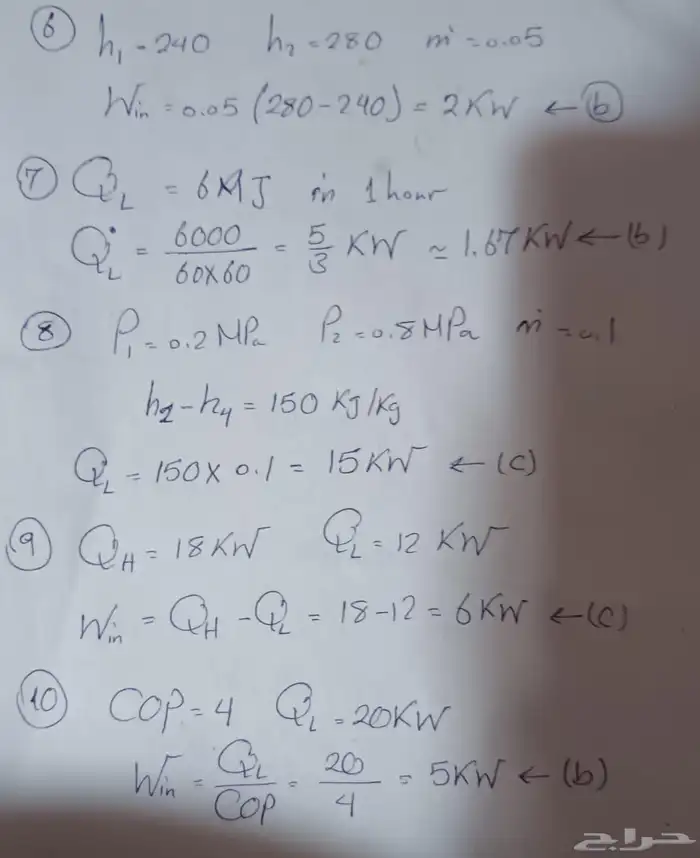 6 h₁ - 240 h₂ = 280 ṁ = 0.05
Win = 0.05 (280 - 240) = 2KW ← (b)
7 QL = 6MJ in 1 hour
Q̇L = 6000/60x60 = 5/3 KW ≃ 1.67KW ← (b)
8 P₁ = 0.2 MPa P₂ = 0.8 MPa ṁ = 0.1
h₁ - h₄ = 150 KJ/Kg
QL = 150 x 0.1 = 15KW ← (c)
9 QH = 18KW Q̇L = 12 KW
Win = QH - QL = 18 - 12 = 6KW ← (c)
10 COP = 4 QL = 20KW
Win = QL/COP = 20/4 = 5KW ← (b)
حراج